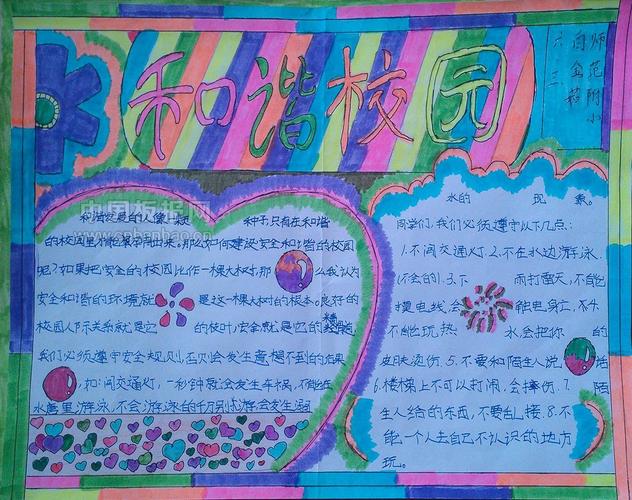 和谐校园
师范附小
白金若
六三
中国板报网
www.cnbanbao.cn
和谐发展的人像一颗 种子,只有在和谐
的校园里才能萌芽开出来。那么如何建设安全和谐的校园
呢?如果把安全的校园比作一棵大树,那 么我认为
安全和谐的环境就 是这一棵大树的根本。良好的
校园人际关系就是它 的枝叶,安全就是它的
我们必须遵守安全规则,否则会发生意想不到的后果
,如:闯交通灯,一秒钟就会发生车祸,不能在
水 里游泳,不会游泳的千万别去游,会发生溺
水的 现象。
同学们,我们必须遵守以下几点:
1.不闯交通灯.2.不在水边游泳.
(不会的).3.下 雨打雷天,不能
摸电线,会 触电身亡.4.
不能玩热 水会把你 的
皮肤烫伤.5.不要和陌生人说 话
6.楼梯上不可以打闹,会摔伤.7. 陌
生人给的东西,不要乱接.8.不
能一个人去自己不认识的地方
玩。